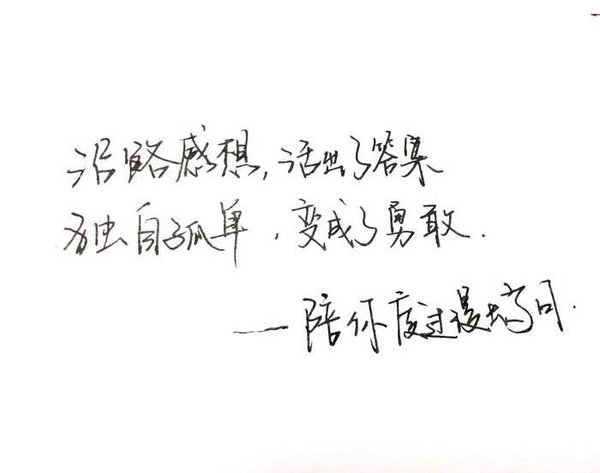 沿路感想,活出了答案
独自孤单,变成了勇敢.
——陪你度过漫长岁月.